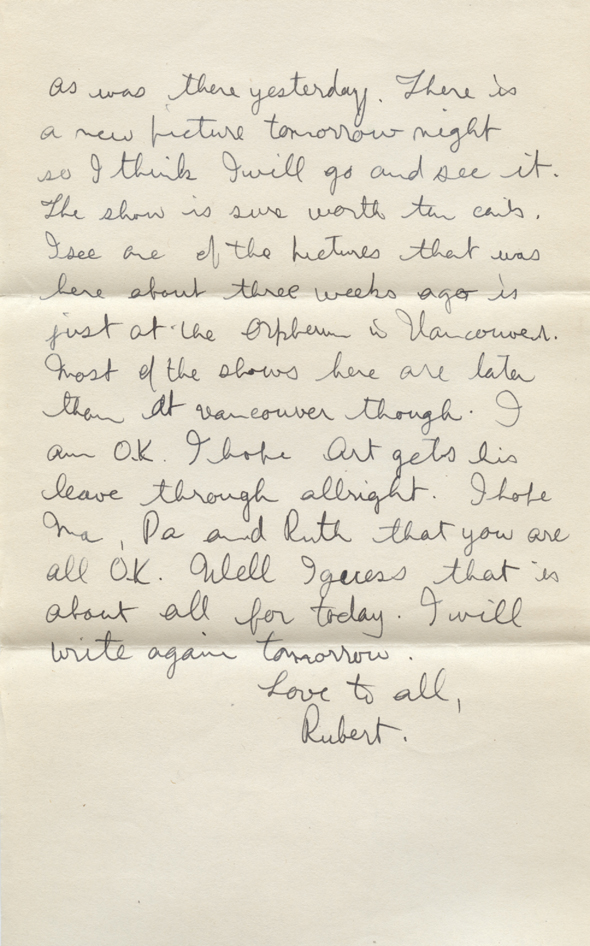 as was there yesterday. There is
a new picture tomorrow night
so I think I will go and see it.
The show is sure worth ten cents.
I see one of the pictures that was
here about three weeks ago is
just at the Orpheum in Vancouver.
Most of the shows here are later
than at Vancouver though. I
am O.K. I hope Art gets his
leave through allright. I hope
Ma, Pa and Ruth that you are
all O.K. Well I guess that is
about all for today. I will
write again tomorrow.
Love to all,
Rubert.